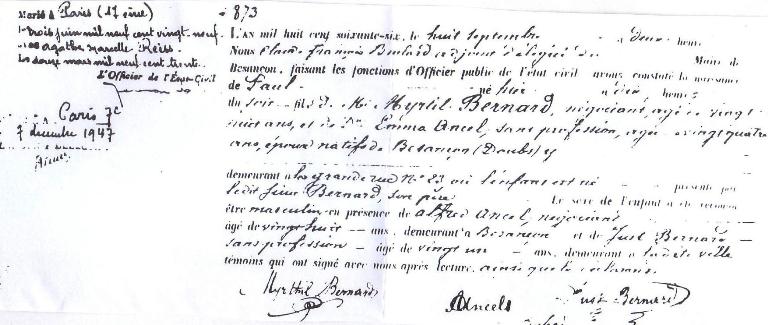 Marié à Paris (17 ème)
trois juin mil neuf cent vingt neuf
agathe Marcelle Reiss.
Le douze mars mil neuf cent trente.
L'Officier de l'Etat Civil
Paris 7e
7 décembre 1947
873
L'AN mil huit cent soixante-six, le huit septembre à deux heu
Nous Claude François adjoint délégué du Maire de
Besançon, faisant les fonctions d'Officier public de l'état civil avons constaté la naissance
de Paul né hier à heures
du soir fils de Mr Myrtil Bernard, négociant, agé de vingt
huit ans, et de De Emma Ancel, sans profession, agée de vingt quatre
ans, époux natifs de Besançon (Doubs) y
demeurant à la grande rue No 23 où l'enfant est né présenté par
ledit sieur Bernard, son père Le sexe de l'enfant a été reconnu
être masculin en présence de alfred Ancel, négociant
âgé de vingt huit ans, demeurant à Besançon et de Just Bernard
sans profession âgé de vingt un ans, demeurant à ladite ville
témoins qui ont signé avec nous après lecture, ainsi que le
Myrthil Bernard
Ancel
Just Bernard